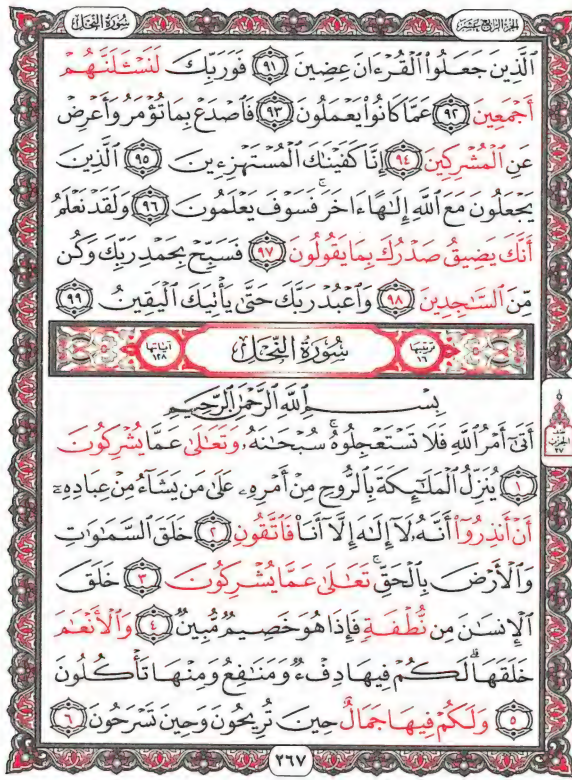 سُورَةُ النَّحْلِ
الجزء الرابع عشر
ٱلَّذِينَ جَعَلُوا۟ ٱلْقُرْءَانَ عِضِينَ ٩١ فَوَرَبِّكَ لَنَسْـَٔلَنَّهُمْ
أَجْمَعِينَ ٩٢ عَمَّا كَانُوا۟ يَعْمَلُونَ ٩٣ فَٱصْدَعْ بِمَا تُؤْمَرُ وَأَعْرِضْ
عَنِ ٱلْمُشْرِكِينَ ٩٤ إِنَّا كَفَيْنَـٰكَ ٱلْمُسْتَهْزِءِينَ ٩٥ ٱلَّذِينَ
يَجْعَلُونَ مَعَ ٱللَّهِ إِلَـٰهًا ءَاخَرَ ۚ فَسَوْفَ يَعْلَمُونَ ٩٦ وَلَقَدْ نَعْلَمُ
أَنَّكَ يَضِيقُ صَدْرُكَ بِمَا يَقُولُونَ ٩٧ فَسَبِّحْ بِحَمْدِ رَبِّكَ وَكُن
مِّنَ ٱلسَّـٰجِدِينَ ٩٨ وَٱعْبُدْ رَبَّكَ حَتَّىٰ يَأْتِيَكَ ٱلْيَقِينُ ٩٩
ترتيبها ١٦ سُورَةُ النَّحْلِ آياتها ١٢٨
بِسْمِ ٱللَّهِ ٱلرَّحْمَـٰنِ ٱلرَّحِيمِ
أَتَىٰٓ أَمْرُ ٱللَّهِ فَلَا تَسْتَعْجِلُوهُ ۚ سُبْحَـٰنَهُۥ وَتَعَـٰلَىٰ عَمَّا يُشْرِكُونَ
١ يُنَزِّلُ ٱلْمَلَـٰٓئِكَةَ بِٱلرُّوحِ مِنْ أَمْرِهِۦ عَلَىٰ مَن يَشَآءُ مِنْ عِبَادِهِۦٓ
أَنْ أَنذِرُوٓا۟ أَنَّهُۥ لَآ إِلَـٰهَ إِلَّآ أَنَا۠ فَٱتَّقُونِ ٢ خَلَقَ ٱلسَّمَـٰوَٰتِ
وَٱلْأَرْضَ بِٱلْحَقِّ ۚ تَعَـٰلَىٰ عَمَّا يُشْرِكُونَ ٣ خَلَقَ
ٱلْإِنسَـٰنَ مِن نُّطْفَةٍ فَإِذَا هُوَ خَصِيمٌ مُّبِينٌ ٤ وَٱلْأَنْعَـٰمَ
خَلَقَهَا ۗ لَكُمْ فِيهَا دِفْءٌ وَمَنَـٰفِعُ وَمِنْهَا تَأْكُلُونَ
٥ وَلَكُمْ فِيهَا جَمَالٌ حِينَ تُرِيحُونَ وَحِينَ تَسْرَحُونَ ٦
٢٦٧